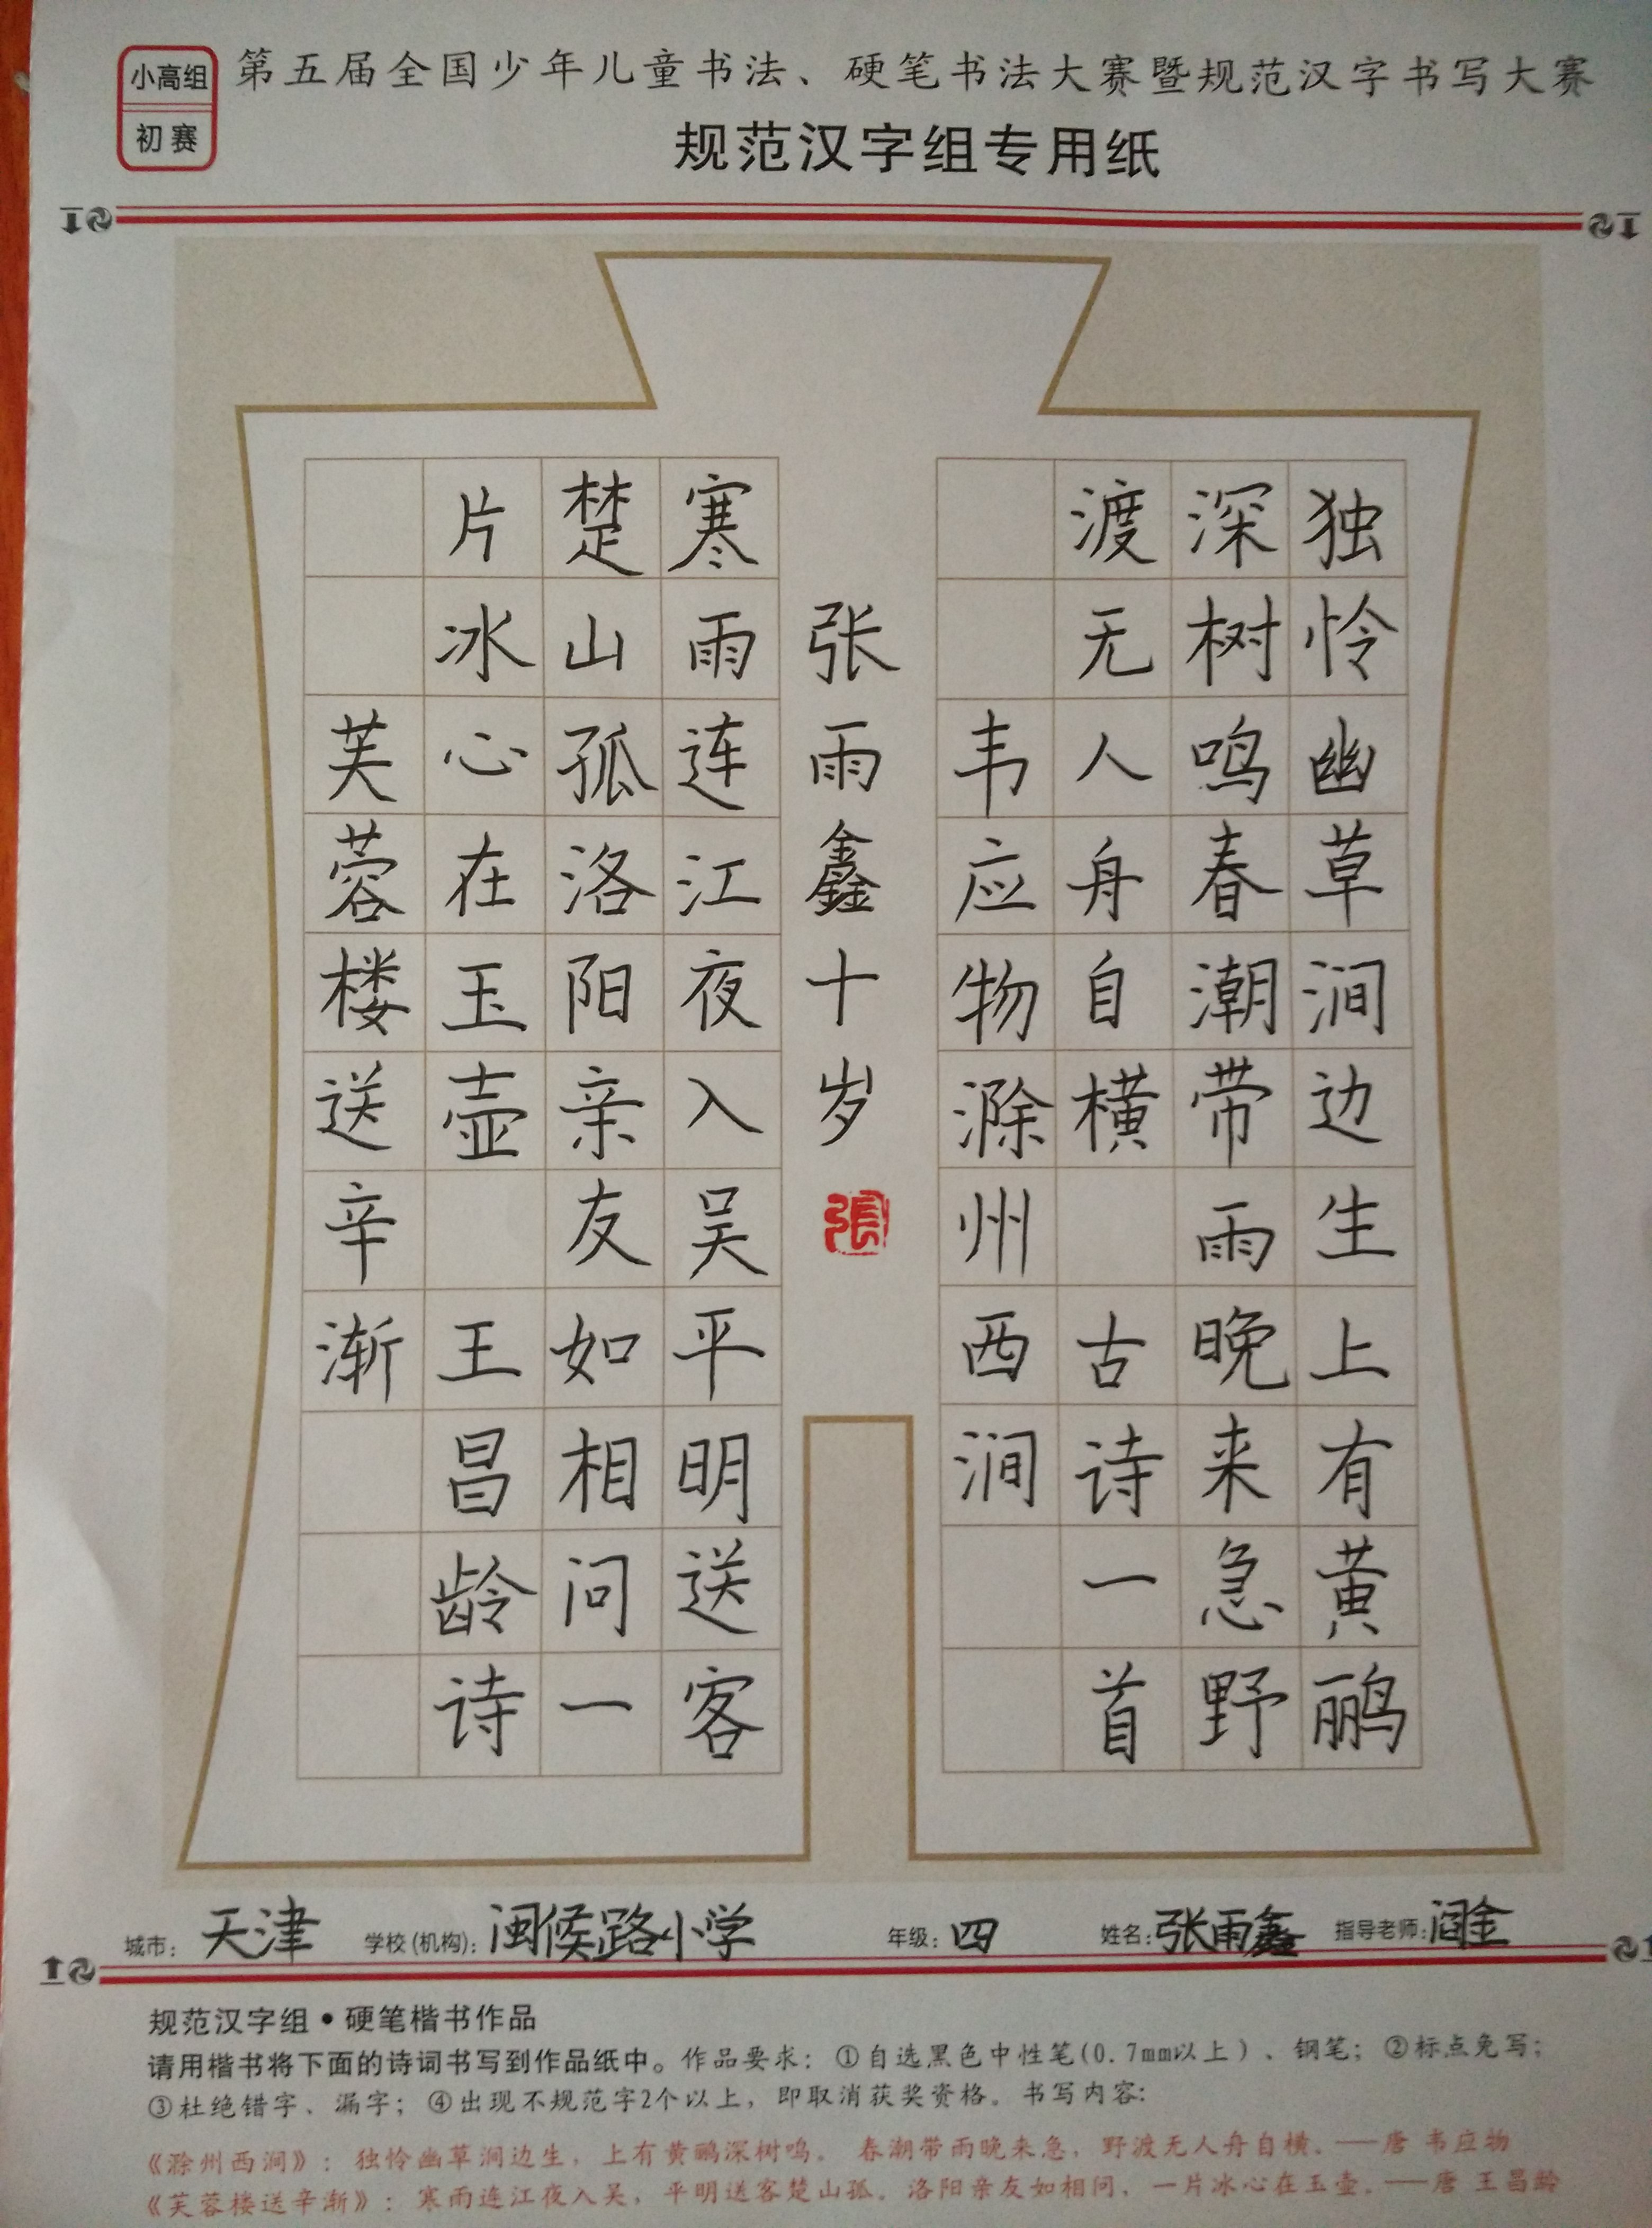 小高组
初赛
第五届全国少年儿童书法、硬笔书法大赛暨规范汉字书写大赛
规范汉字组专用纸
独怜幽草涧边生上有黄鹂
深树鸣春潮带雨晚来急野
渡无人舟自横 古诗一首
韦应物滁州西涧
张雨鑫十岁
張
寒雨连江夜入吴平明送客
楚山孤洛阳亲友如相问一
片冰心在玉壶 王昌龄诗
芙蓉楼送辛渐
城市：天津 学校(机构)：闽侯路小学 年级：四 姓名：张雨鑫 指导老师：阎金
规范汉字组•硬笔楷书作品
请用楷书将下面的诗词书写到作品纸中。作品要求：①自选黑色中性笔(0.7mm以上)、钢笔；②标点免写；
③杜绝错字、漏字；④出现不规范字2个以上，即取消获奖资格。书写内容：
《滁州西涧》：独怜幽草涧边生，上有黄鹂深树鸣。春潮带雨晚来急，野渡无人舟自横。——唐 韦应物
《芙蓉楼送辛渐》：寒雨连江夜入吴，平明送客楚山孤。洛阳亲友如相问，一片冰心在玉壶。——唐 王昌龄